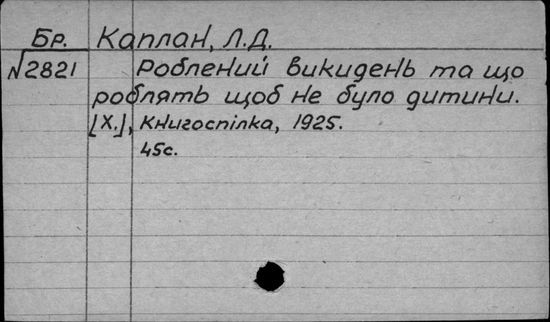 Бр. Каплан, Л.Д.
N2821 Роблений викидень та що
роблять щоб не було дитини.
[Х.], Книгоспілка, 1925.
45с.